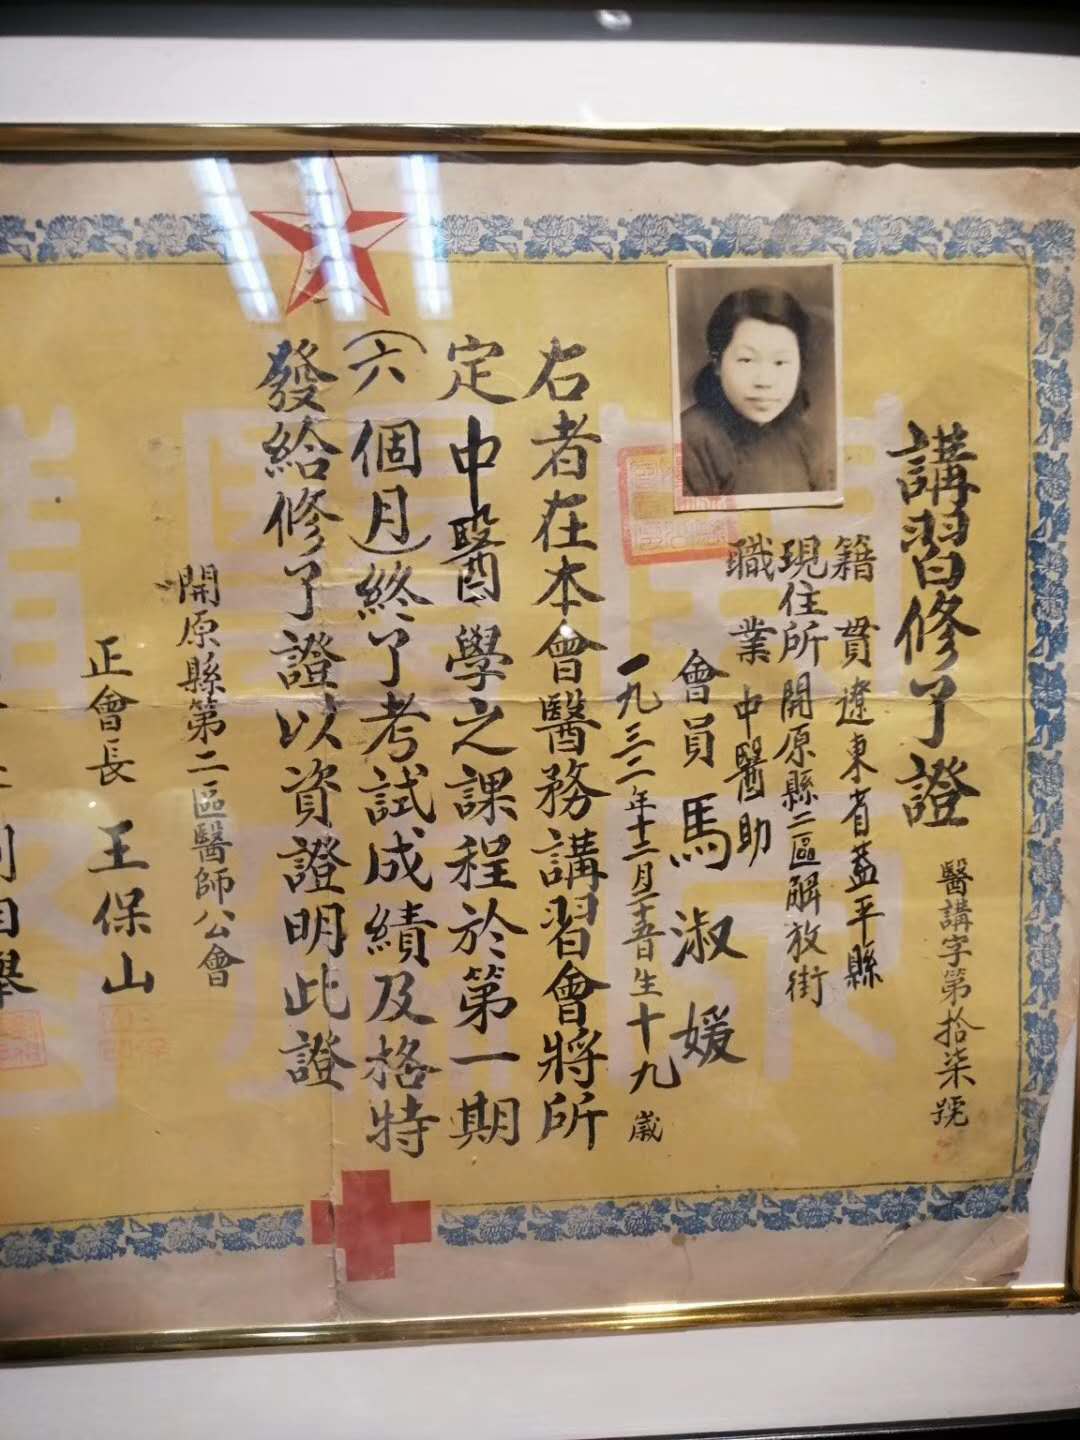 講習修了證
醫講字第拾柒號
籍貫遼東省蓋平縣
現住所開原縣二區解放街
職業中醫助
會員馬淑媛
一九三二年十二月二十五日生十九歲
右者在本會醫務講習會將所
定中醫學之課程於第一期
（六個月）終了考試成績及格特
發給修了證以資證明此證
開原縣第二區醫師公會
正會長王保山